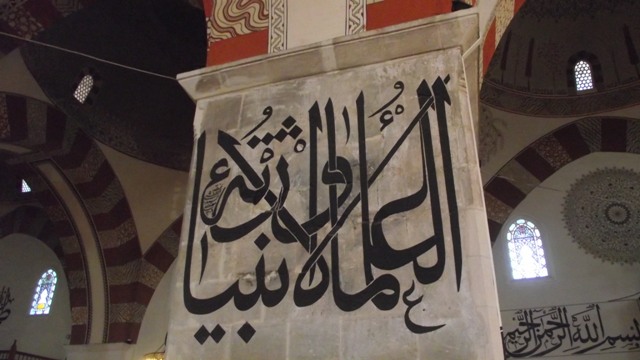 العلماء ورثة الأنبياء
بسم الله الرحمن الرحيم